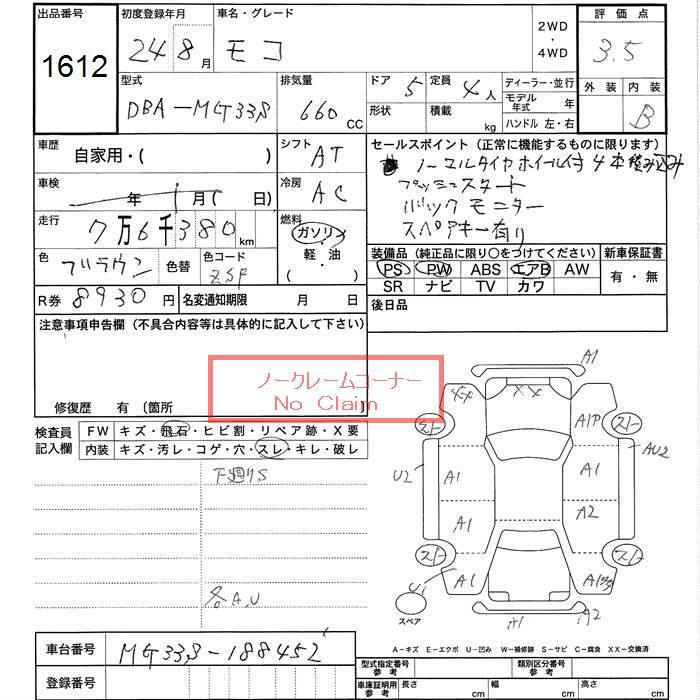 出品番号
1612
初度登録年月
24 8月
車名・グレード
モコ
2WD
・
4WD
評価点
3.5
外装 内装
B
型式
DBA-MG33S
排気量
660 CC
ドア 5
形状
定員 4人
積載 kg
ディーラー・並行
モデル年式 年
ハンドル 左・右
車歴
自家用・( )
シフト AT
車検
年 1月( 日)
冷房 AC
走行
7万6千380km
燃料
ガソリン
・
軽・油
色
ブラウン
色替
色コード
ZSF
R券 8930円
名変通知期限 月 日
セールスポイント(正常に機能するものに限ります)
ノーマルタイヤホイール付4本積み込み
プッシュスタート
バックモニター
スペアキー有り
装備品(純正品に限り○をつけてください)
PS PW ABS エアB AW
SR ナビ TV カワ
新車保証書
有・無
後日品
注意事項申告欄(不具合内容等は具体的に記入して下さい)
ノークレームコーナー
No Claim
修復歴 有〔箇所
検査員記入欄
FW キズ・飛石・ヒビ割・リペア跡・X要
内装 キズ・汚レ・コゲ・穴・スレ・キレ・破レ
下廻りS
各A.U
A1
XX XX
A1P
スノー スノー
U2 A1 A1 AU2
A1 A2
スノー スノー
U1 A1 A1
A1 A2
スペア
A-キズ E-エクボ U-凹み W-補修跡 S-サビ C-腐食 XX-交換済
車台番号 MG33S-188452
登録番号
型式指定番号 参考
類別区分番号 参考
車庫証明用 参考 長さ cm 幅 cm 高さ cm